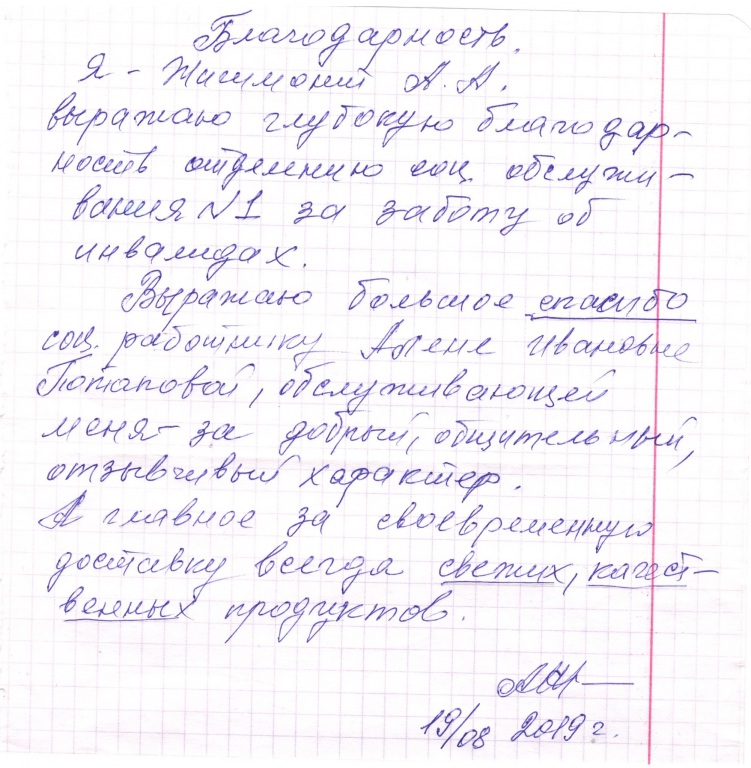 Благодарность.
Я - А.А.
выражаю глубокую благодар-
ность отделению соц. обслужи-
вания №1 за заботу об
инвалидах.
Выражаю большое спасибо
соц. работнику Алене Ивановне
Потаповой, обслуживающей
меня - за добрый, общительный,
отзывчивый характер.
А главное за своевременную
доставку всегда свежих, качест-
венных продуктов.
19/08 2019 г.